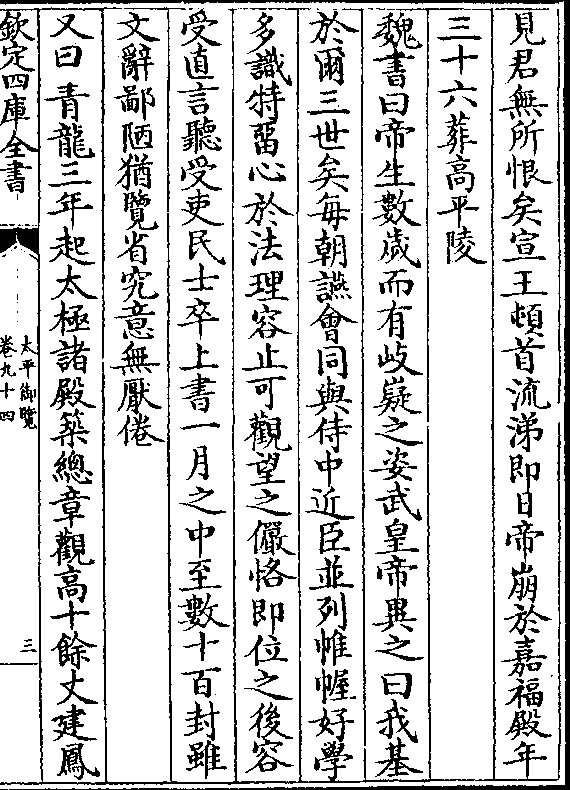 見君無所恨矣宣王頓首流涕即日帝崩於嘉福殿年
三十六葬高平陵
魏書曰帝生數歲而有岐嶷之姿武皇帝異之曰我基
於爾三世矣每朝讌會同與侍中近臣並列帷幄好學
多識特留心於法理容止可觀望之儼恪即位之後容
受直言聽受吏民士卒上書一月之中至數十百封雖
文辭鄙陋猶覽省究意無厭倦
又曰青龍三年起太極諸殿築總章觀高十餘丈建鳳
欽定四庫全書
太平御覽
卷九十四
三